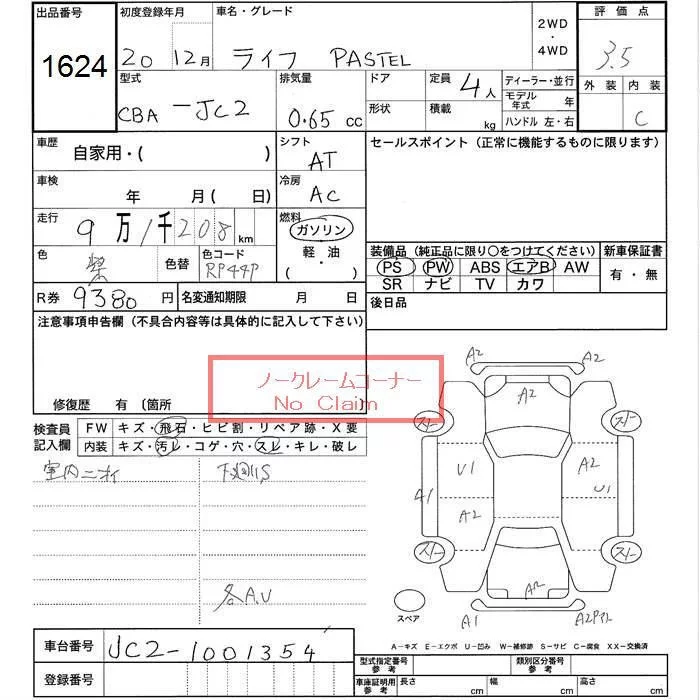 出品番号
1624
初度登録年月
20 12月
車名・グレード
ライフ PASTEL
2WD
・
4WD
評価点
3.5
外装 内装
C
型式
CBA-JC2
排気量
0.65 cc
ドア
形状
定員 4人
積載 kg
ディーラー・並行
モデル年式 年
ハンドル 左・右
車歴
自家用・( )
シフト
AT
セールスポイント (正常に機能するものに限ります)
車検
年 月( 日)
冷房
AC
走行
9万1千208km
燃料
ガソリン
軽・油
( )
色
紫
色替
色コード
RP44P
装備品 (純正品に限り○をつけてください)
PS PW ABS エアB AW
SR ナビ TV カワ
新車保証書
有・無
R券 9380円
名変通知期限 月 日
後日品
注意事項申告欄 (不具合内容等は具体的に記入して下さい)
ノークレームコーナー
No Claim
修復歴 有 〔箇所 〕
検査員
記入欄
FW キズ・飛石・ヒビ割・リペア跡・X要
内装 キズ・汚レ・コゲ・穴・スレ・キレ・破レ
室内ニオイ
下廻りS
各A.U
A2 A2
A2
スノー スノー
U1 A2
A1 U1
A2
スノー スノー
A2
スペア
A1 A2
A-キズ E-エクボ U-凹み W-補修跡 S-サビ C-腐食 XX-交換済
車台番号
JC2-1001354
登録番号
型式指定番号
参考
類別区分番号
参考
車庫証明用
参考
長さ cm
幅 cm
高さ cm